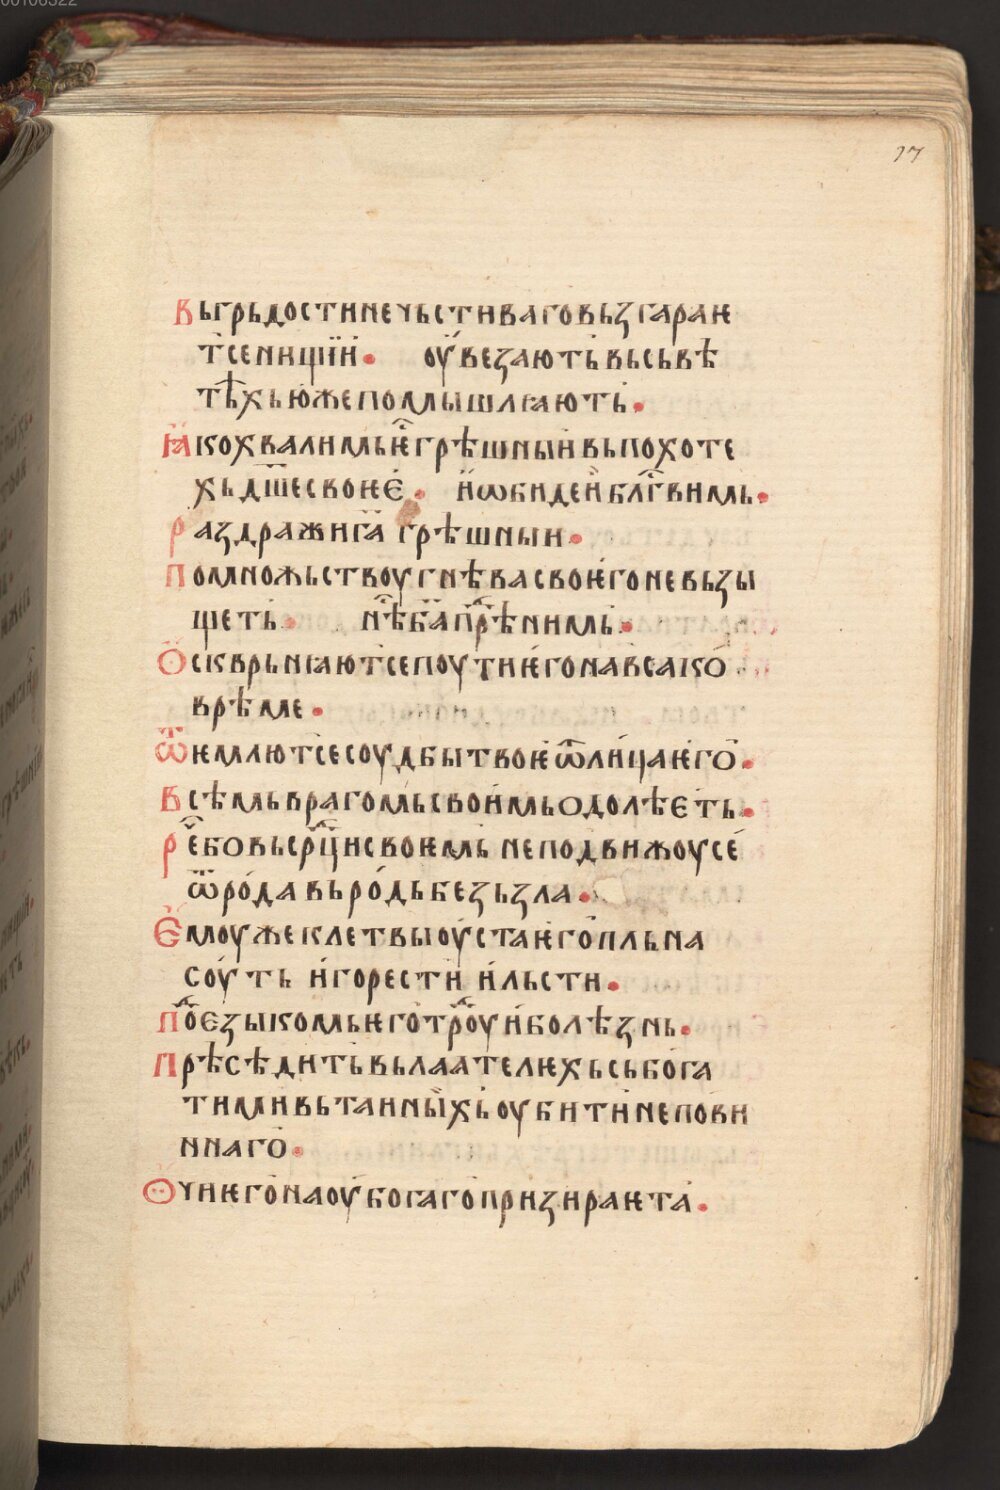 00106322
17
Вьгрьдостинечьстиваговьзгараѥ
тсенищїи. оу́везають вьсьвѣ
тѣ́хьюже помышлꙗють.
Ꙗкохвалимьѥ҆́грѣшныивьпохоте
хьдш҃есвоѥе҆. и҆ѡбидеи҆блг҃вимь.
Раздражига҃ грѣшныи.
Помножьствоугнѣвасвоѥ҆гоневьзы
щеть. нѣ́ба҃прѣ́нимь.
Ѻсквршнꙗютсепоутиѥ҆гонавсако
врѣме.
Ѿѥмлютсесоудбытвоѥ҆ѿлицаѥго.
Всѣмьврагомьсвои҆мьѻдолѣѥть.
Рⷱ҇ебовьсрⷣциисвоѥмь неподвижоусе
ѿро́давьро́дьбезьзла.
Е҆моужеклетвыоу҆стаѥгопльна
соу́ть и҆горести и҆льсти.
Поⷣѥзыкомьѥготроу́ⷣи҆болѣзнь.
Прѣсѣдить вьлаателѥхьсьбога
тимивьтаиныхьоубитинепови
ннаго.
Ѻчиѥгонаоубогагопризираѥта.